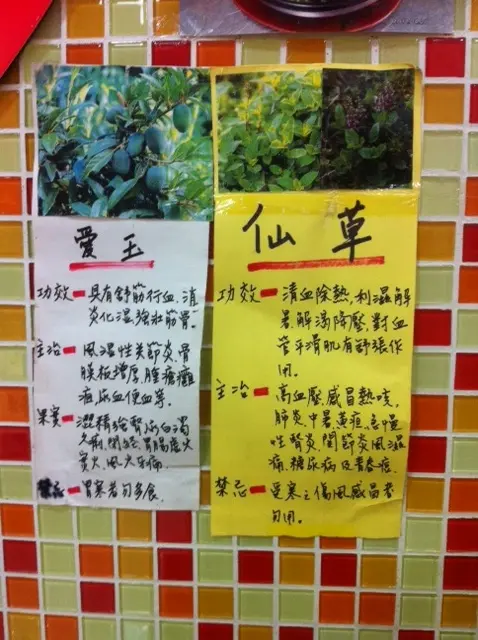 愛玉
功效-具有舒筋行血.消
炎化濕.強壯筋骨.
主治-風濕性關節炎.骨
膜板增厚.腫瘡癰
疽.尿血便血等.
果實-澀精
禁忌-胃寒者勿多食.
仙草
功效-清血除熱,利濕解
暑.解渴降壓.對血
管平滑肌有舒張作
用.
主治-高血壓.感冒熱咳,
肺炎.中暑.黃疸.急中慢
性腎炎.關節炎.風濕
痛.糖尿病及青春痘.
禁忌-受寒之傷風感冒者
勿用。